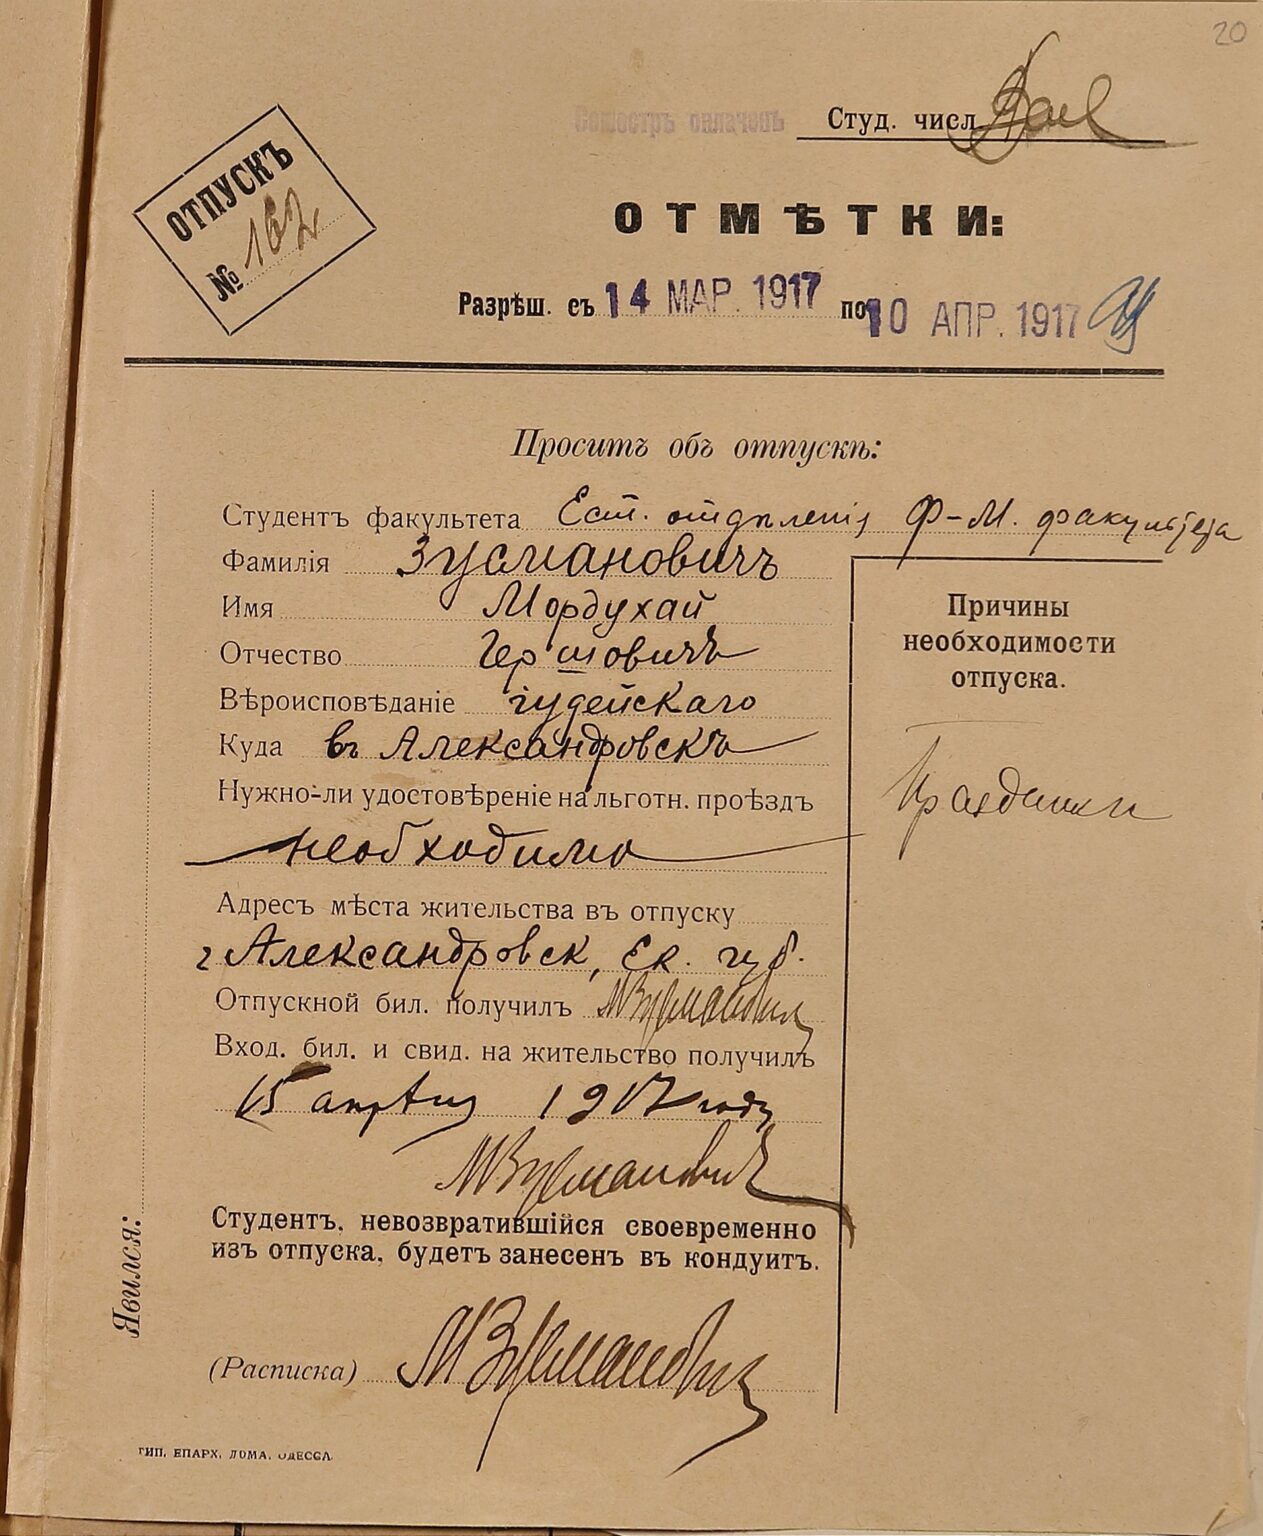 20
Семестръ оплаченъ Студ. числ
ОТПУСКЪ
№ 162
ОТМѢТКИ:
Разрѣш. съ 14 МАР. 1917 по 10 АПР. 1917
Проситъ объ отпускѣ:
Студентъ факультета Ест. отдѣленія Ф-М. факультета
Фамилія Зусмановичъ
Имя Мордухай
Отчество Гершовичъ
Вѣроисповѣданіе іудейскаго
Куда въ Александровскъ
Нужно-ли удостовѣреніе на льготн. проѣздъ
необходимо
Адресъ мѣста жительства въ отпуску
г Александровск, Ек. губ.
Отпускной бил. получилъ МЗусманович
Вход. бил. и свид. на жительство получилъ
15 апрѣля 1917 года
МЗусманович
Студентъ, невозвратившійся своевременно
изъ отпуска, будетъ занесенъ въ кондуитъ.
(Расписка) МЗусманович
Причины
необходимости
отпуска.
Праздники
Явился:
ТИП. ЕПАРХ. ДОМА. ОДЕССА.